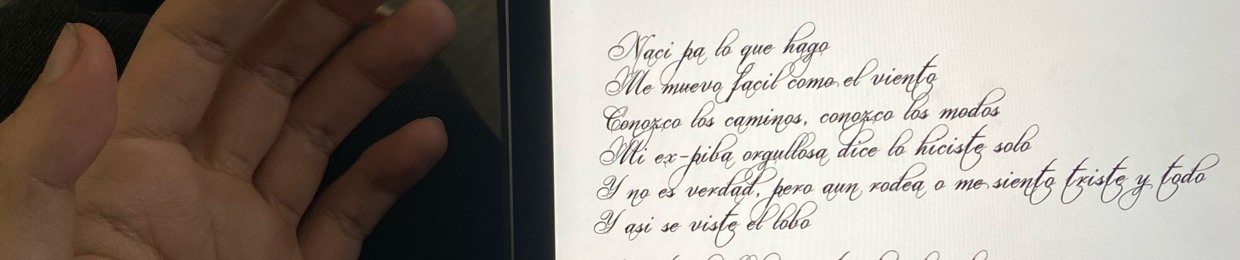 Naci pa lo que hago
Me muevo facil como el viento
Conozco los caminos, conozco los modos
Mi ex-piba orgullosa dice lo hiciste solo
Y no es verdad, pero aun rodea o me siento triste y todo
Y asi se viste el lobo